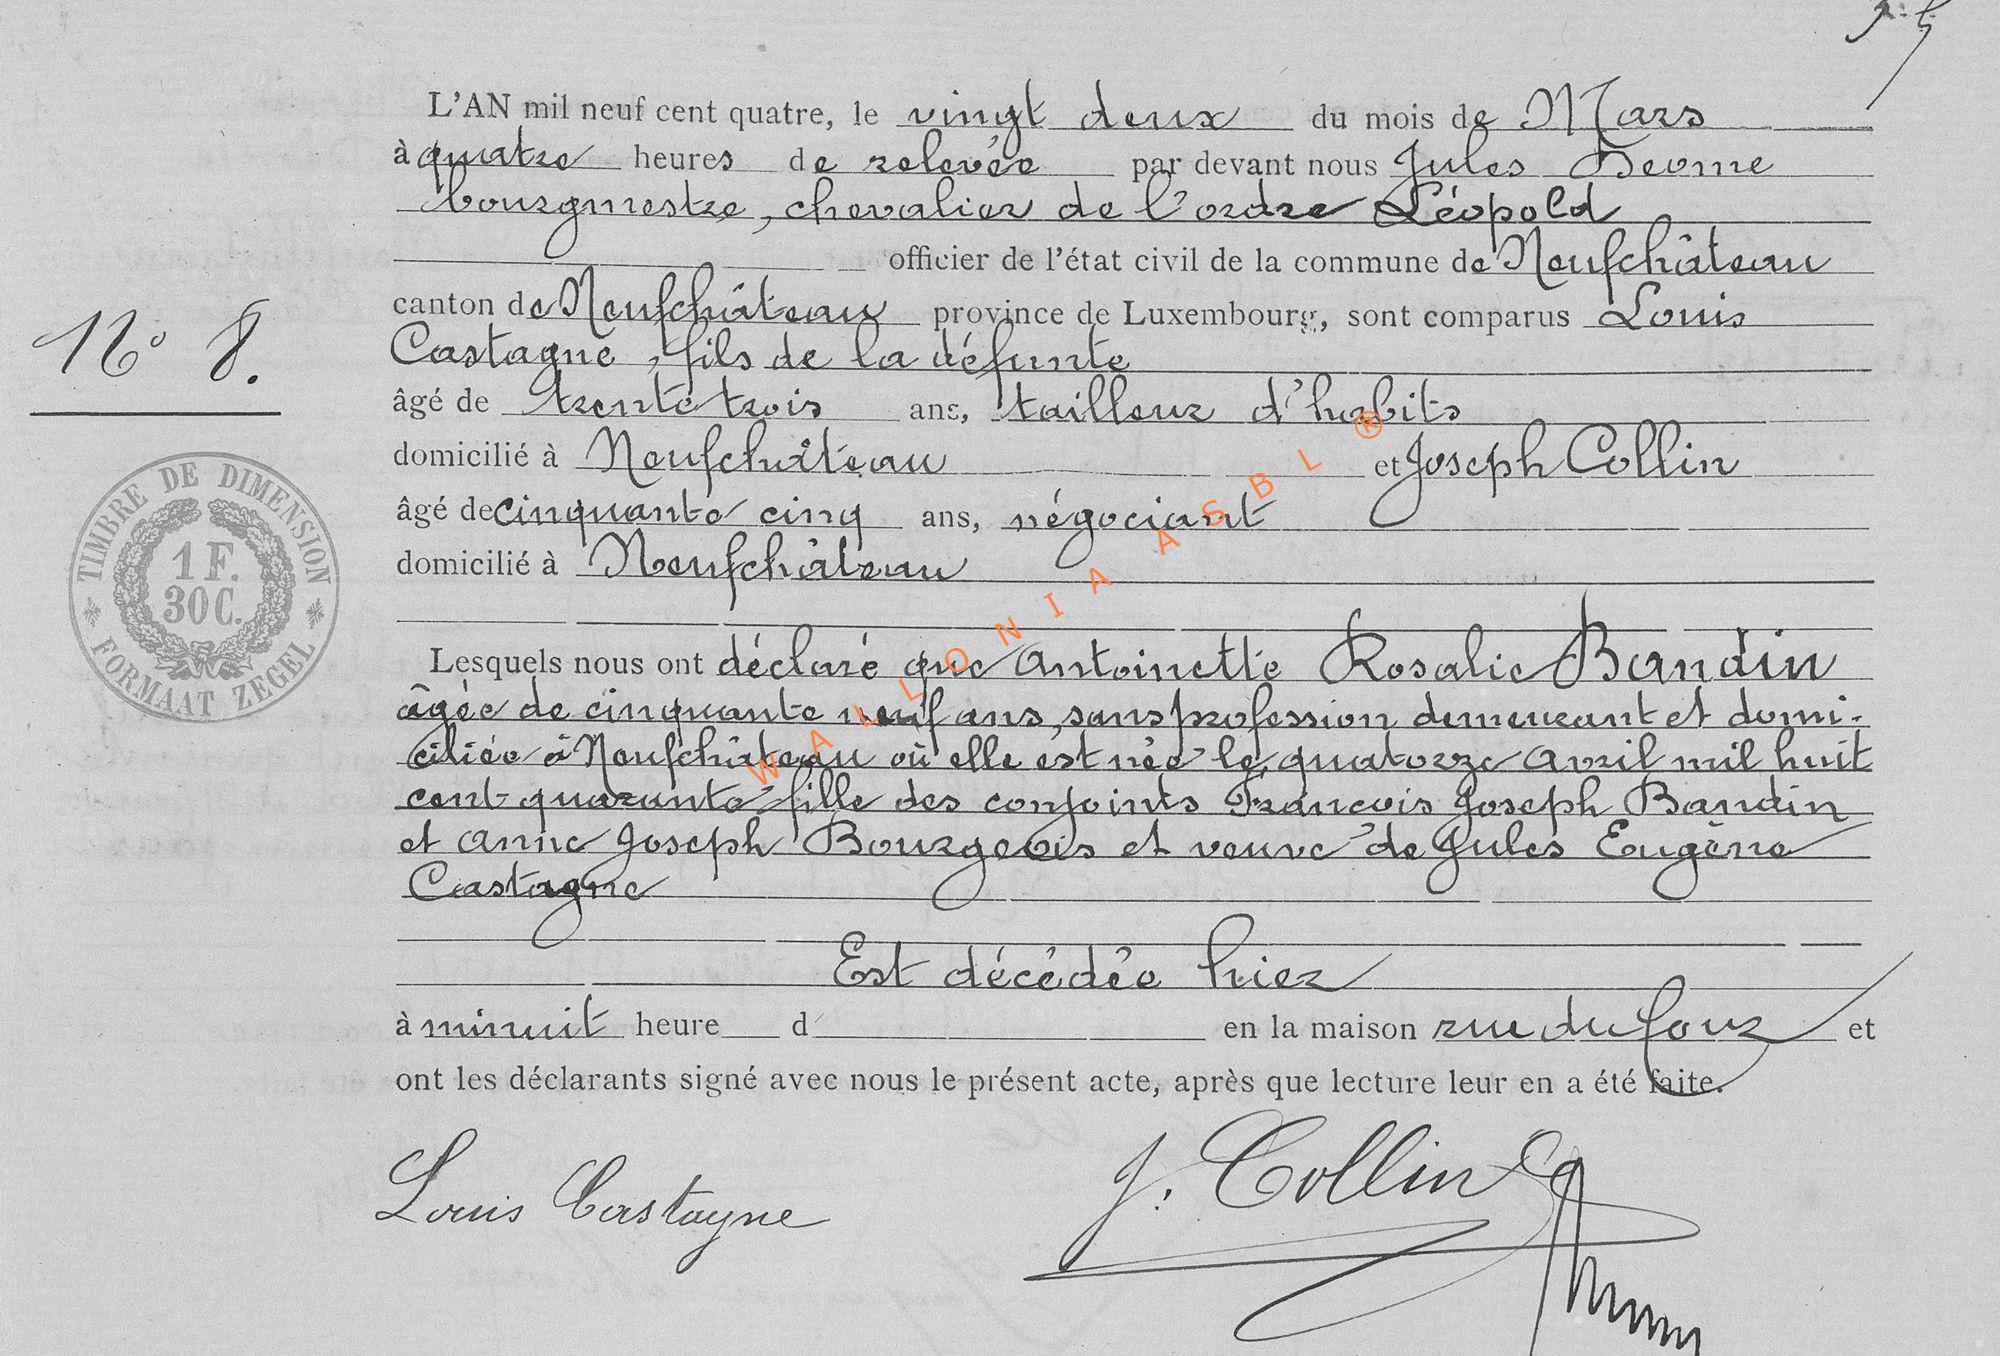 L'AN mil neuf cent quatre, le vingt deux du mois de Mars
à quatre heures de relevée par devant nous Jules
bourgmestre, chevalier de l'ordre Léopold
officier de l'état civil de la commune de Neufchâteau
N° 8.
canton de Neufchâteau province de Luxembourg, sont comparus Louis
Castagne, fils de la défunte
âgé de trente trois ans, tailleur d'habits
domicilié à Neufchâteau et Joseph Collin
âgé de cinquante cinq ans, négociant
domicilié à Neufchâteau
TIMBRE DE DIMENSION
1 F.
30 C.
FORMAAT ZEGEL
WALLONIA ASBL ®
Lesquels nous ont déclaré que Antoinette Rosalie Baudin
âgée de cinquante neuf ans, sans profession demeurant et domi-
ciliée à Neufchâteau où elle est née le quatorze avril mil huit
cent quarante fille des conjoints François Joseph Baudin
et Anne Joseph Bourgeois et veuve de Jules Eugène
Castagne
Est décédée hier
à minuit heure d en la maison rue du four et
ont les déclarants signé avec nous le présent acte, après que lecture leur en a été faite.
Louis Castagne
J. Collin